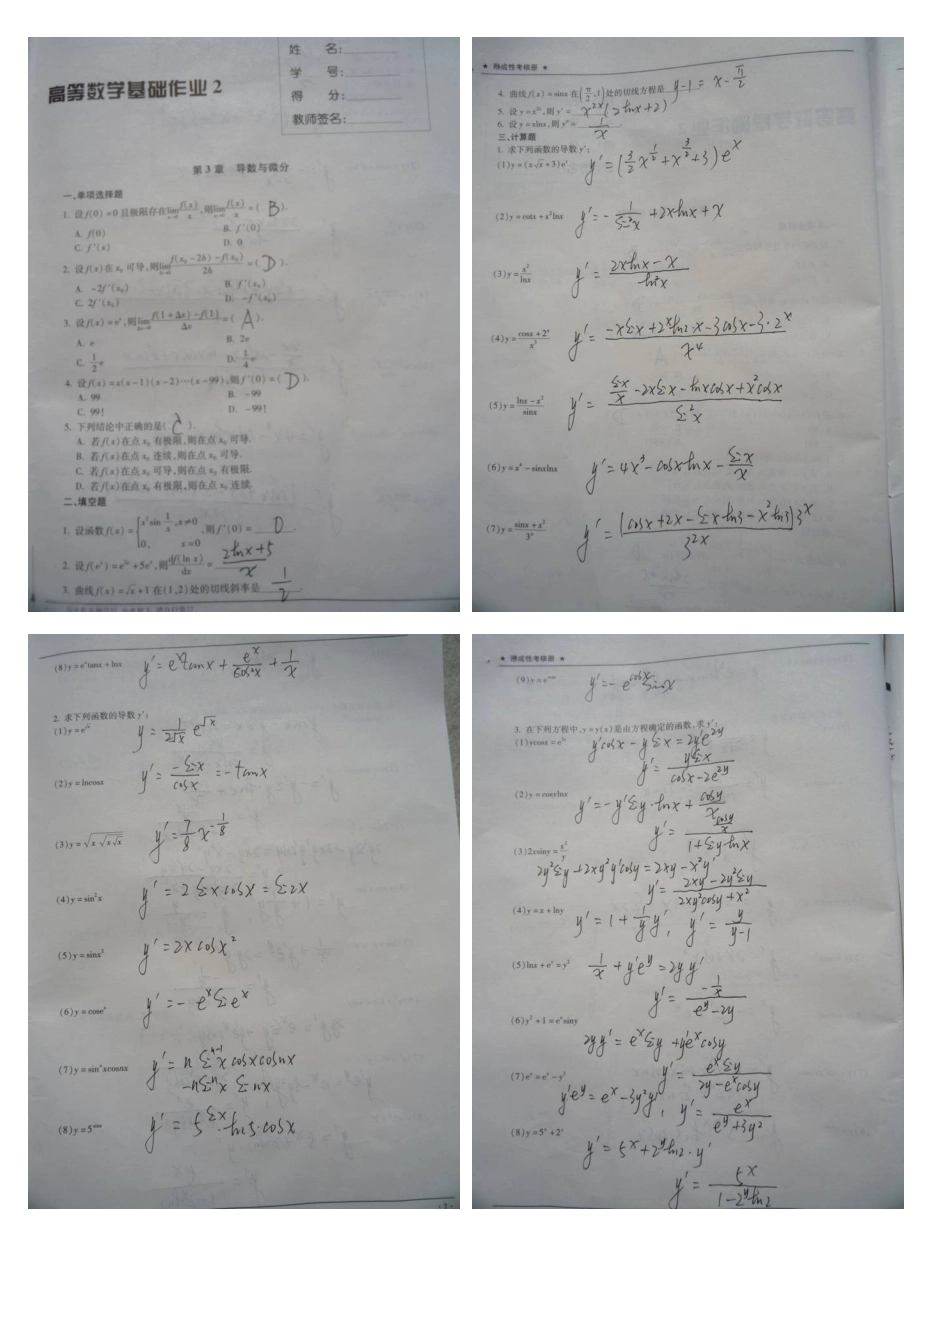 高等数学基础作业 2
姓 名:
学 号:
得 分:
教师签名:
第 3 章 导数与微分
一、单项选择题
1. 设 f(0) = 0 且极限存在 lim f(x)/x, 则 lim f(x)/x = ( B ).
A. f(0) B. f'(0)
C. f'(x) D. 0
2. 设 f(x) 在 x₀ 可导, 则 lim (f(x₀ - 2h) - f(x₀))/2h = ( D ).
A. -2f'(x₀) B. f'(x₀)
C. 2f'(x₀) D. -f'(x₀)
3. 设 f(x) = eˣ, 则 lim (f(1 + Δx) - f(1))/Δx = ( A ).
A. e B. 2e
C. 1/2 e D. 1/4 e
4. 设 f(x) = x(x - 1)(x - 2)⋯(x - 99), 则 f'(0) = ( D ).
A. 99 B. -99
C. 99! D. -99!
5. 下列结论中正确的是( C ).
A. 若 f(x) 在点 x₀ 有极限, 则在点 x₀ 可导.
B. 若 f(x) 在点 x₀ 连续, 则在点 x₀ 可导.
C. 若 f(x) 在点 x₀ 可导, 则在点 x₀ 有极限.
D. 若 f(x) 在点 x₀ 有极限, 则在点 x₀ 连续.
二、填空题
1. 设函数 f(x) = { x² sin 1/x, x≠0; 0, x=0, 则 f'(0) = 0
2. 设 f(eˣ) = e²ˣ + 5eˣ, 则 df(ln x)/dx = (2lnx+5)/x
3. 曲线 f(x) = √x + 1 在 (1,2) 处的切线斜率是 1/2
★ 形成性考核册 ★
4. 曲线 f(x) = sinx 在 (π/2, 1) 处的切线方程是 y-1 = x - π/2
5. 设 y = x²ˣ, 则 y' = x²ˣ(2lnx+2)
6. 设 y = xlnx, 则 y'' = 1/x
三、计算题
1. 求下列函数的导数 y':
(1) y = (x√x + 3)eˣ y' = (3/2 x^(1/2) + x^(3/2) + 3) eˣ
(2) y = cotx + x²lnx y' = - 1/sin²x + 2xlnx + x
(3) y = x²/lnx y' = (2xlnx - x)/ln²x
(4) y = (cosx + 2ˣ)/x³ y' = (-xsinx + 2ˣln2·x - 3cosx - 3·2ˣ)/x⁴
(5) y = (lnx - x²)/sinx y' = (sinx/x - 2xsinx - lnxcosx + x²cosx)/sin²x
(6) y = x⁴ - sinxlnx y' = 4x³ - cosxlnx - sinx/x
(7) y = (sinx + x²)/3ˣ y' = (cosx + 2x - sinxln3 - x²ln3)3ˣ/3²ˣ
(8) y = eˣtanx + lnx y' = eˣtanx + eˣ/cos²x + 1/x
2. 求下列函数的导数 y':
(1) y = e^√x y = 1/(2√x) e^√x
(2) y = lncosx y' = -sinx/cosx = -tanx
(3) y = √(x√(x√x)) y' = 7/8 x^(-1/8)
(4) y = sin²x y' = 2sinxcosx = sin2x
(5) y = sinx² y' = 2xcosx²
(6) y = coseˣ y' = - eˣsineˣ
(7) y = sinⁿxcosnx y' = n sinⁿ⁻¹x cosxcosnx
-nsinⁿx sin nx
(8) y = 5^sinx y' = 5^sinx·ln5·cosx
★ 形成性考核册 ★
(9) y = e^cosx y' = - e^cosx sinx
3. 在下列方程中, y = y(x) 是由方程确定的函数, 求 y':
(1) ycosx = e²ʸ y'cosx - ysinx = 2y'e²ʸ
y' = ysinx/(cosx - 2e²ʸ)
(2) y = cosylnx y' = -y'siny·lnx + cosy/x
y' = (cosy/x)/(1 + siny·lnx)
(3) 2xsiny = x²/y
2y²siny + 2xy²y'cosy = 2xy - x²y'
y' = (2xy - 2y²siny)/(2xy²cosy + x²)
(4) y = x + lny y' = 1 + 1/y y', y' = y/(y-1)
(5) lnx + eʸ = y² 1/x + y'eʸ = 2yy'
y' = (-1/x)/(eʸ - 2y)
(6) y² + 1 = eˣsiny
2yy' = eˣsiny + y'eˣcosy
y' = eˣsiny/(2y - eˣcosy)
(7) eʸ = eˣ - y³
y'eʸ = eˣ - 3y²y', y' = eˣ/(eʸ + 3y²)
(8) y = 5ˣ + 2ʸ
y' = 5ˣ + 2ʸln2·y'
y' = 5ˣ/(1 - 2ʸln2)